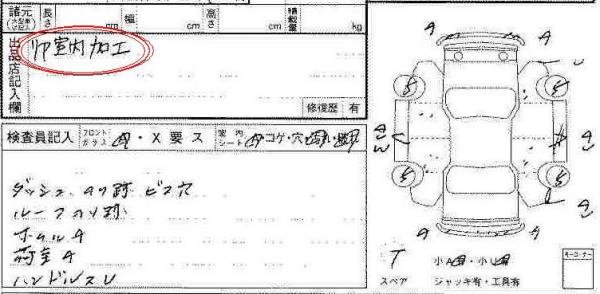 諸元
長さ cm 幅 cm 高さ cm 積載量 kg
出品店記入欄
リア室内加工
修復歴 有
検査員記入 フロントガラス A・X要ス 室内シート コゲ・穴
ダッシュ ノリ跡 ビス穴
ルーフノリ跡
ホイルA
荷室A
ハンドルスレ
A A
A A
T 小A・小U
スペア ジャッキ有・工具有
キーコーナー